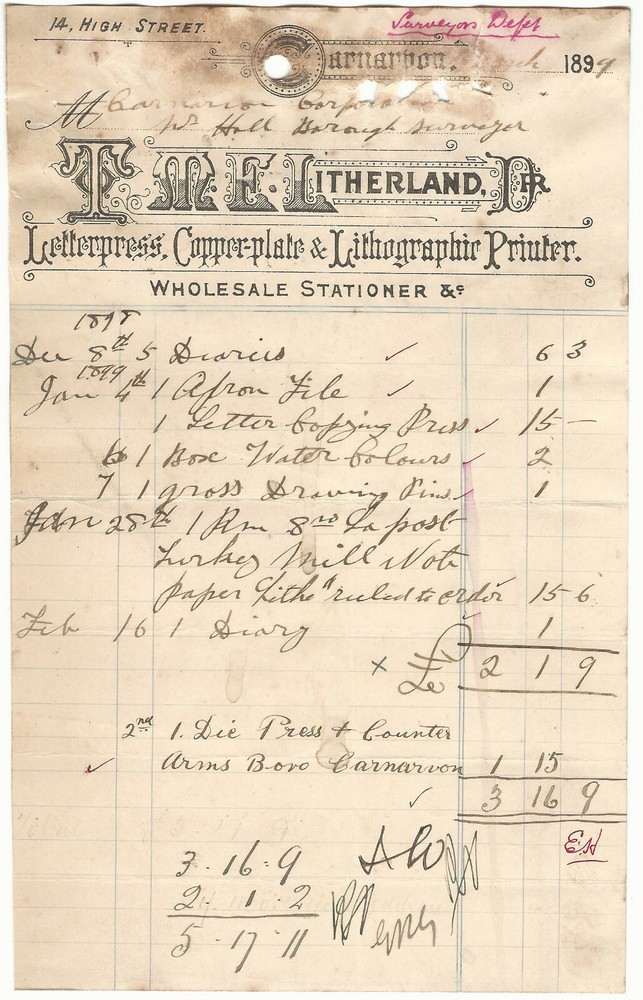 14, HIGH STREET.
Surveyors Dept
Carnarvon, 1899
M Carnarvon Corporation
pr Hall Borough Surveyor
T M.F. LITHERLAND, DR
Letterpress, Copper-plate & Lithographic Printer.
WHOLESALE STATIONER &c
1898
Dec 8th 5 Diaries ✓ 6 3
1899
Jan 4th 1 Apron File ✓ 1
1 Letter Copying Press ✓ 15 —
6 1 Box Water Colours ✓ 2
7 1 gross Drawing Pins ✓ 1
Jan 28th 1 Rm 8vo La post
Turkey Mill Note
paper Litho "ruled to order ✓ 15 6
Feb 16 1 Diary ✓ 1
× £ 2 1 9
2nd 1. Die Press & Counter
✓ Arms Boro Carnarvon 1 15
✓ 3 16 9
E.H
3.16.9
2.1.2
5.17.11